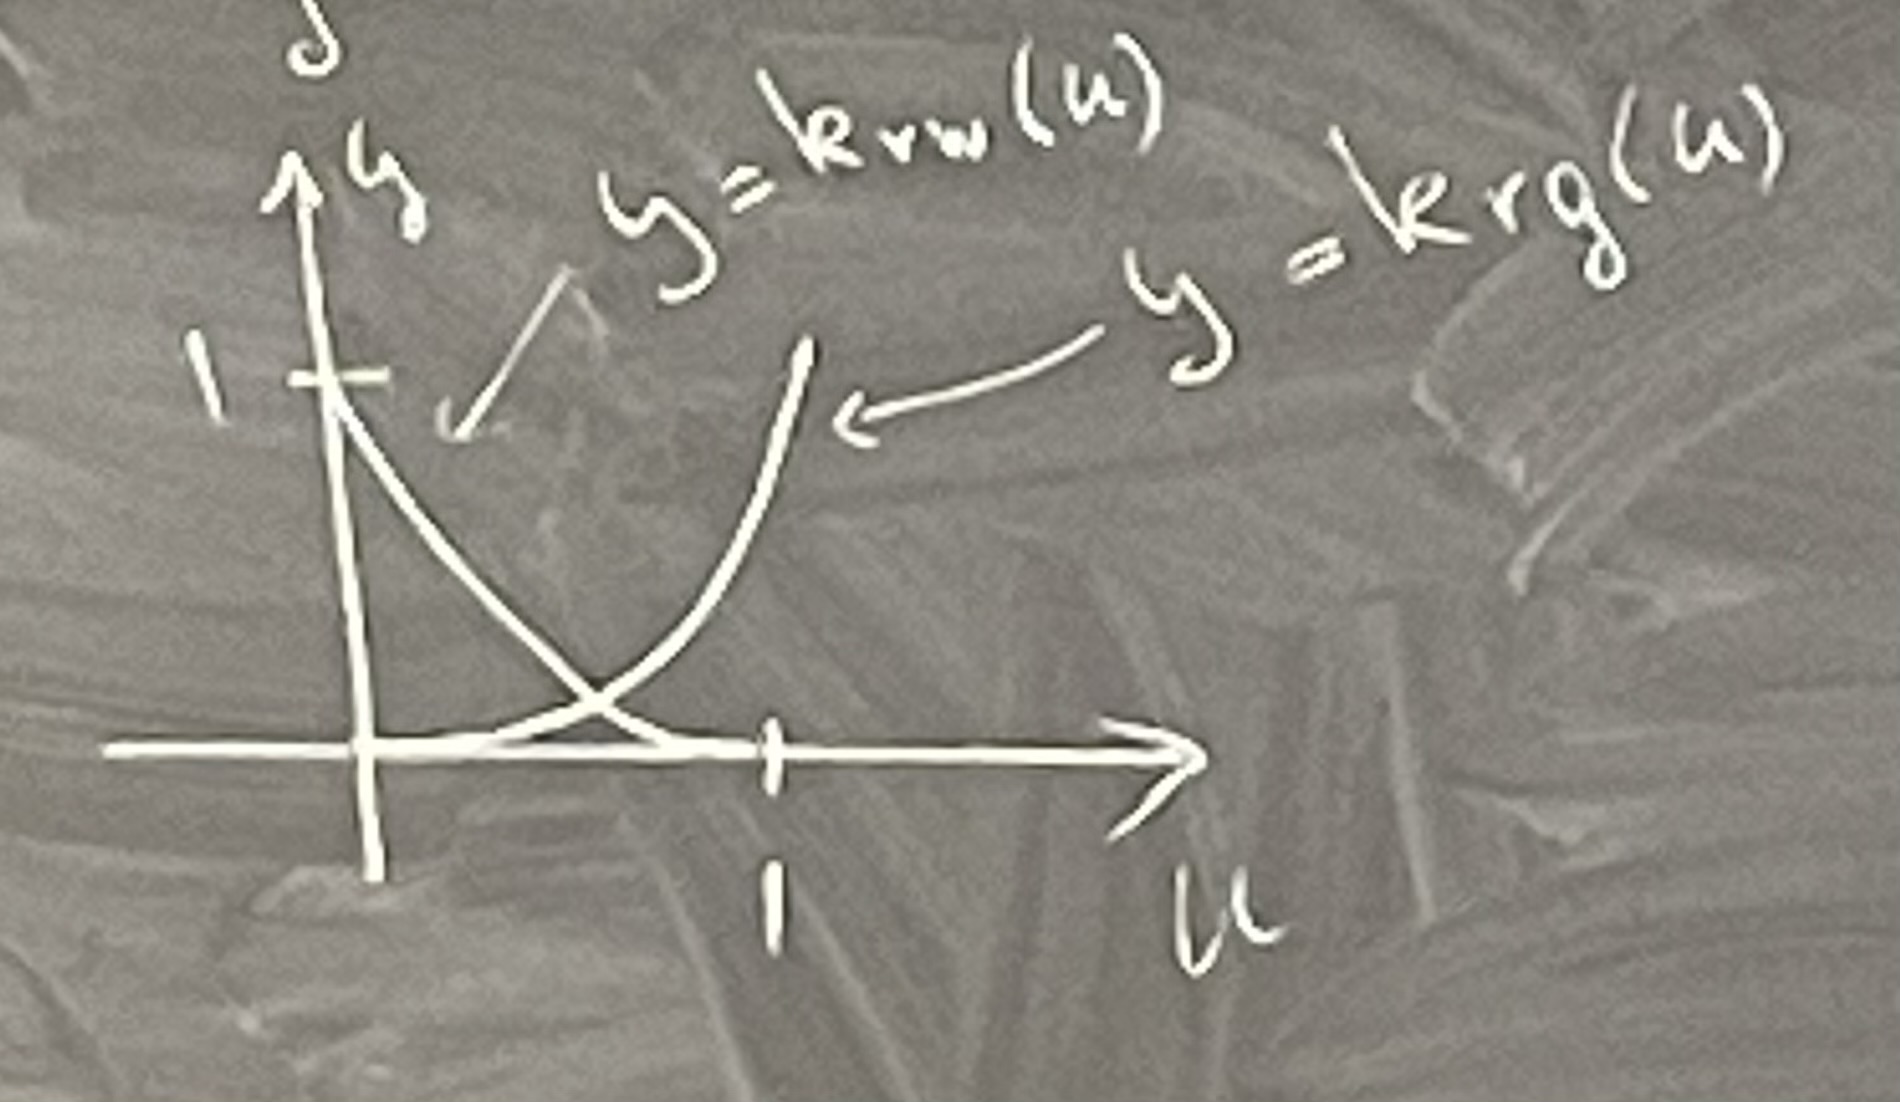 y
y = krw(u)
y = krg(u)
1
1
u